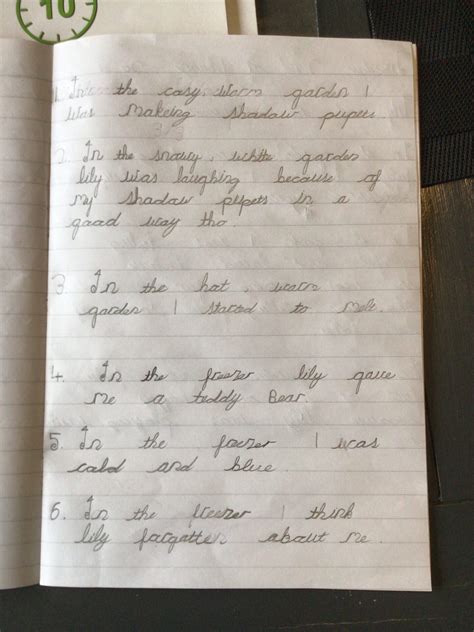 10
1. In the cosy, warm garden I
was makeing shadow pupets
2. In the snowy, white garden
lily was laughing because of
my shadow pupets in a
good way tho.
3. In the hot, warm
garden I started to melt.
4. In the freezer lily gave
me a teddy Bear.
5. In the freezer I was
cold and blue.
6. In the freezer I think
lily forgotten about me.